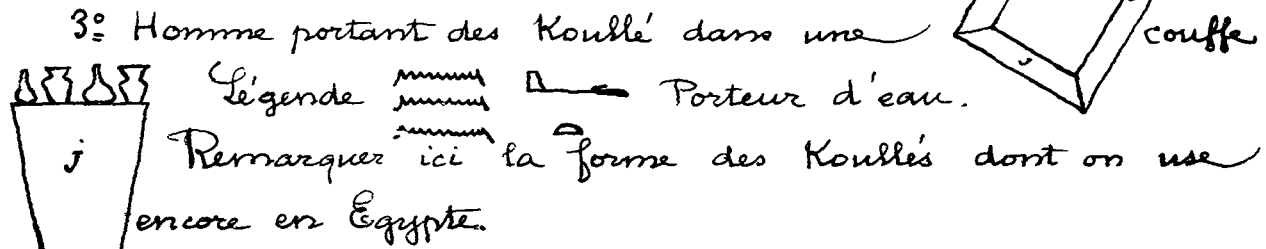 3º Homme portant des Koullé dans une couffe
Légende 𓈗 𓂝 𓏏 Porteur d'eau.
j Remarquer ici la forme des Koullés dont on use
encore en Egypte.
j